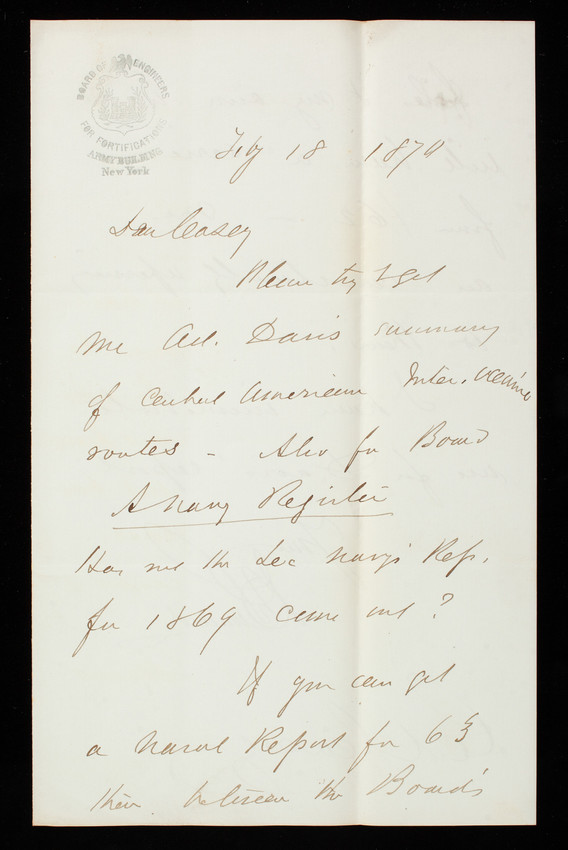 BOARD OF ENGINEERS
FOR FORTIFICATIONS
ARMY BUILDING
New York
Feby 18 1870
Dear Casey
Please try & get
me Ad. Davis summary
of Central American Inter-oceanic
routes - Also for Board
A Navy Register
Has not the Sec Navy's Rep.
for 1869 come out?
If you can get
a Naval Report for 63
then between the Board's